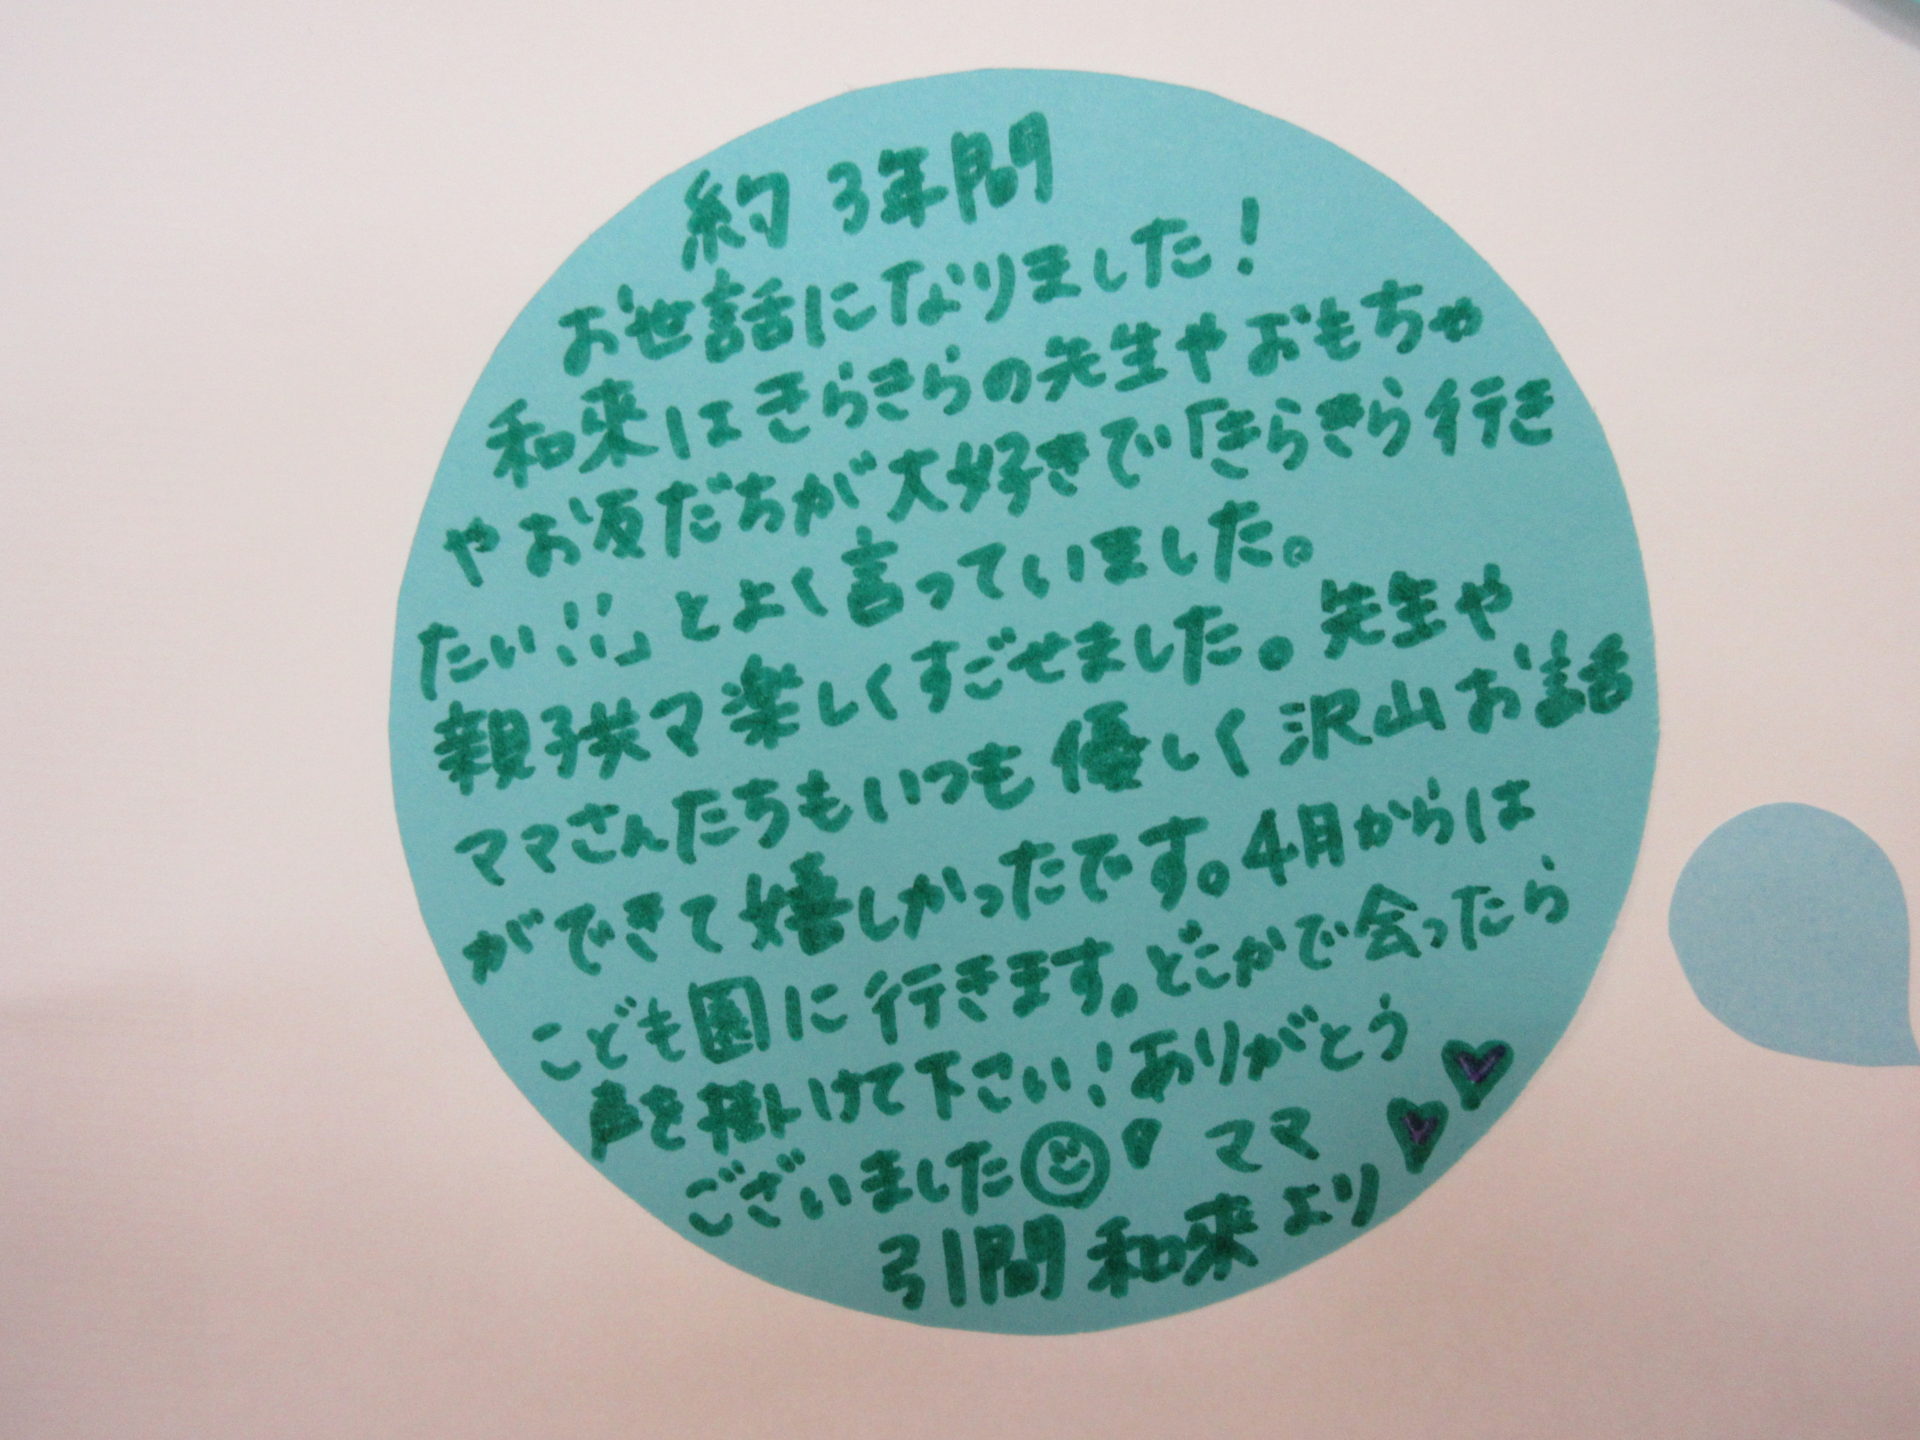 約3年間
お世話になりました!
和来はきらきらの先生やおもちゃ
やお友だちが大好きで「きらきら行き
たい!!」とよく言っていました。
親子共々楽しくすごせました。先生や
ママさんたちもいつも優しく沢山お話
ができて嬉しかったです。4月からは
こども園に行きます。どこかで会ったら
声を掛けて下さい!ありがとう
ございました
ママ
引間 和来より